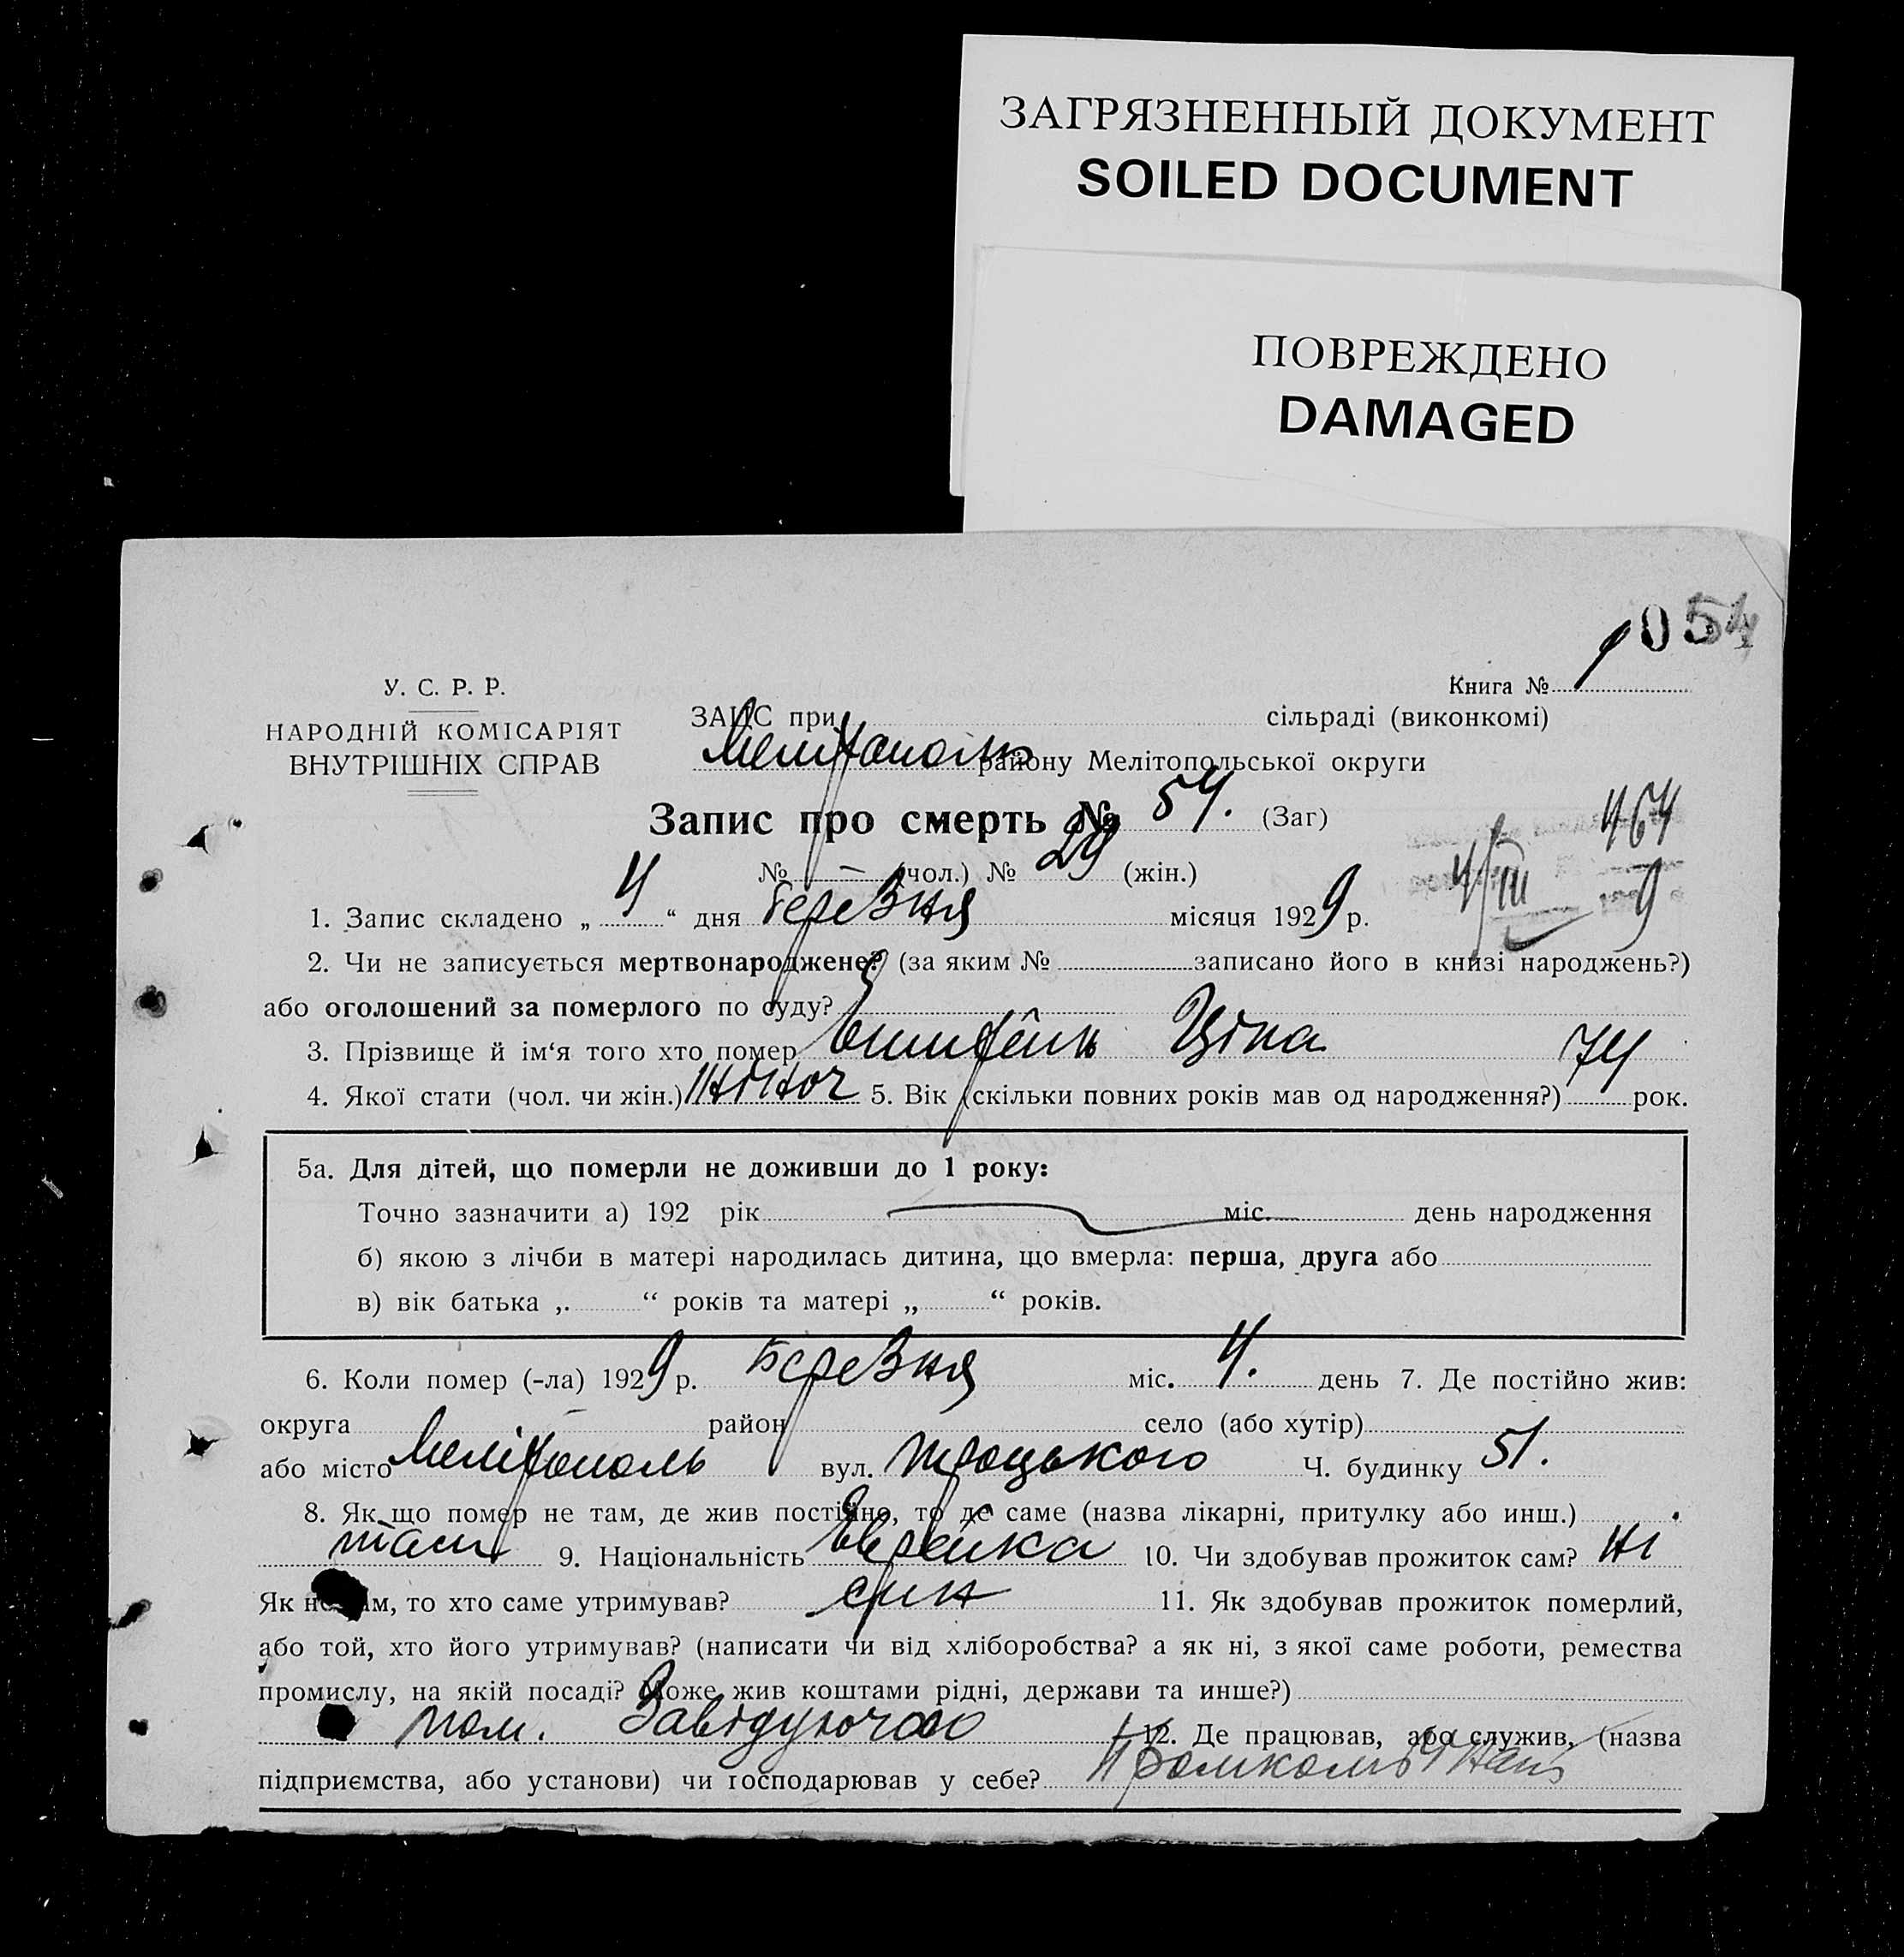 ЗАГРЯЗНЕННЫЙ ДОКУМЕНТ
SOILED DOCUMENT
ПОВРЕЖДЕНО
DAMAGED
054
Книга № 1
У. С. Р. Р.
НАРОДНІЙ КОМІСАРІЯТ
ВНУТРІШНІХ СПРАВ
ЗАГС при сільраді (виконкомі)
Мелітополь району Мелітопольської округи
Запис про смерть № 54. (Заг)
464
№ — (чол.) № 24 (жін.)
4/III 9
1. Запис складено „ 4 “ дня березня місяця 1929 р.
2. Чи не записується мертвонароджене? (за яким № записано його в книзі народжень?)
або оголошений за померлого по суду?
3. Прізвище й ім‘я того хто помер Ціпа
4. Якої стати (чол. чи жін.) жіноч 5. Вік (скільки повних років мав од народження?) 74 рок.
5а. Для дітей, що померли не доживши до 1 року:
Точно зазначити а) 192 рік міс. день народження
б) якою з лічби в матері народилась дитина, що вмерла: перша, друга або
в) вік батька „ “ років та матері „ “ років.
6. Коли помер (-ла) 1929 р. Березня міс. 4. день 7. Де постійно жив:
округа район село (або хутір)
або місто Мелітополь вул. Троцького Ч. будинку 51.
8. Як що помер не там, де жив постійно, то де саме (назва лікарні, притулку або инш.)
там 9. Національність Єврейка 10. Чи здобував прожиток сам? ні
Як не сам, то хто саме утримував? син 11. Як здобував прожиток померлий,
або той, хто його утримував? (написати чи від хліборобства? а як ні, з якої саме роботи, ремества
промислу, на якій посаді? Може жив коштами рідні, держави та инше?)
пом. Завідуючого 12. Де працював, або служив, (назва
підприємства, або установи) чи господарював у себе?